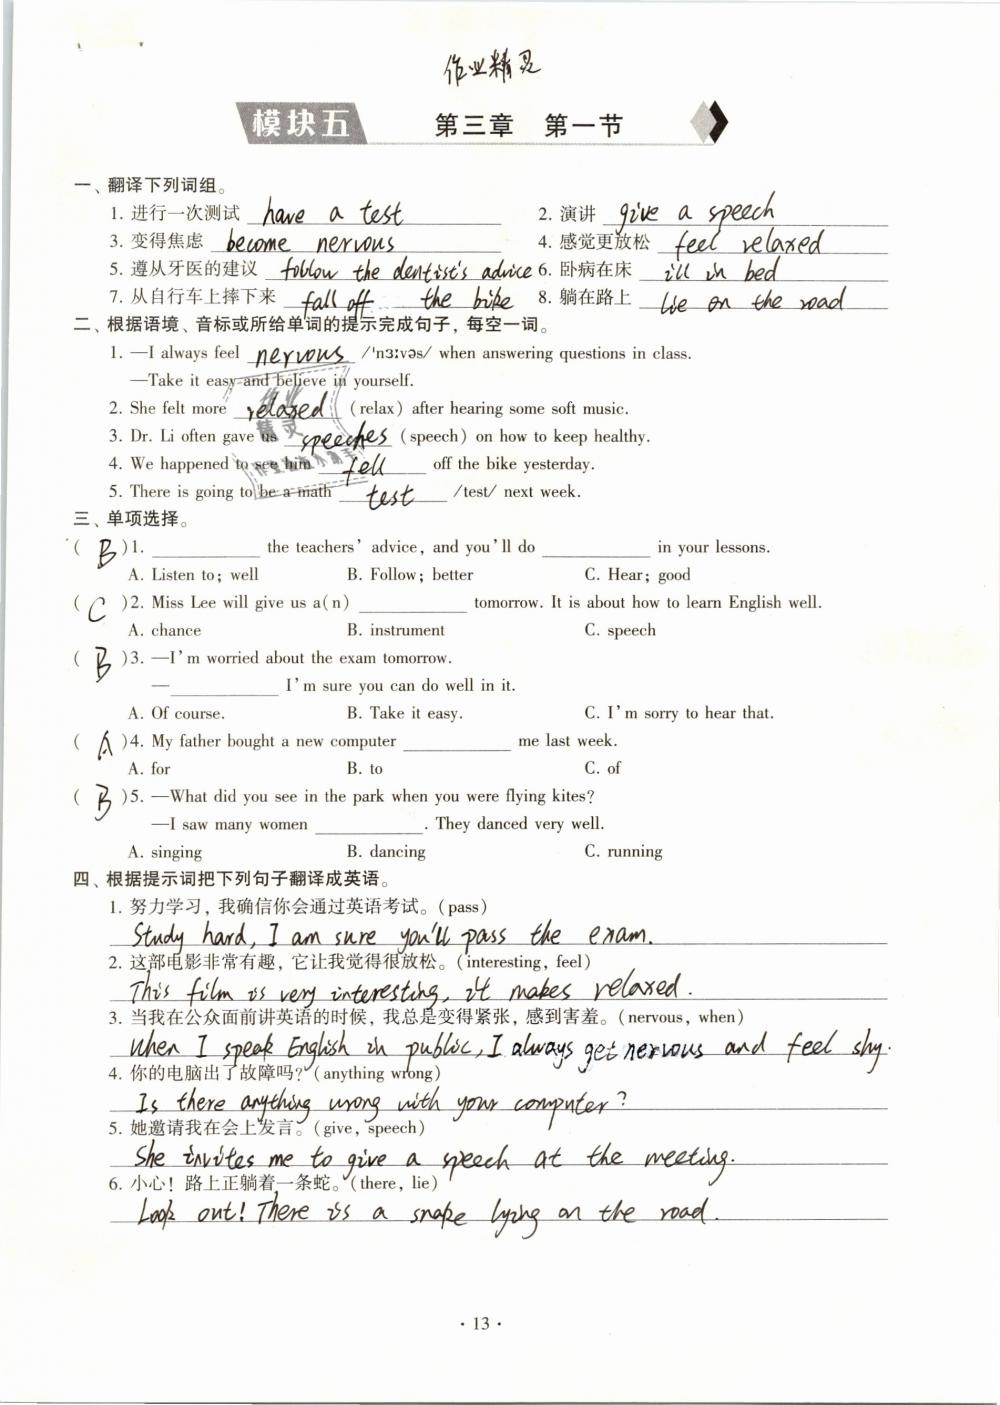 作业精灵
模块五 第三章 第一节
一、翻译下列词组。
1. 进行一次测试 have a test 2. 演讲 give a speech
3. 变得焦虑 become nervous 4. 感觉更放松 feel relaxed
5. 遵从牙医的建议 follow the dentist's advice 6. 卧病在床 ill in bed
7. 从自行车上摔下来 fall off the bike 8. 躺在路上 lie on the road
二、根据语境、音标或所给单词的提示完成句子，每空一词。
1. —I always feel nervous /ˈnɜːvəs/ when answering questions in class.
—Take it easy and believe in yourself.
2. She felt more relaxed (relax) after hearing some soft music.
3. Dr. Li often gave us speeches (speech) on how to keep healthy.
4. We happened to see him fell off the bike yesterday.
5. There is going to be a math test /test/ next week.
三、单项选择。
( B )1. ____ the teachers' advice, and you'll do ____ in your lessons.
A. Listen to; well B. Follow; better C. Hear; good
( C )2. Miss Lee will give us a(n) ____ tomorrow. It is about how to learn English well.
A. chance B. instrument C. speech
( B )3. —I'm worried about the exam tomorrow.
—____ I'm sure you can do well in it.
A. Of course. B. Take it easy. C. I'm sorry to hear that.
( A )4. My father bought a new computer ____ me last week.
A. for B. to C. of
( B )5. —What did you see in the park when you were flying kites?
—I saw many women ____. They danced very well.
A. singing B. dancing C. running
四、根据提示词把下列句子翻译成英语。
1. 努力学习，我确信你会通过英语考试。(pass)
Study hard, I am sure you'll pass the exam.
2. 这部电影非常有趣，它让我觉得很放松。(interesting, feel)
This film is very interesting, it makes relaxed.
3. 当我在公众面前讲英语的时候，我总是变得紧张，感到害羞。(nervous, when)
When I speak English in public, I always get nervous and feel shy.
4. 你的电脑出了故障吗？(anything wrong)
Is there anything wrong with your computer?
5. 她邀请我在会上发言。(give, speech)
She invites me to give a speech at the meeting.
6. 小心！路上正躺着一条蛇。(there, lie)
Look out! There is a snake lying on the road.
· 13 ·